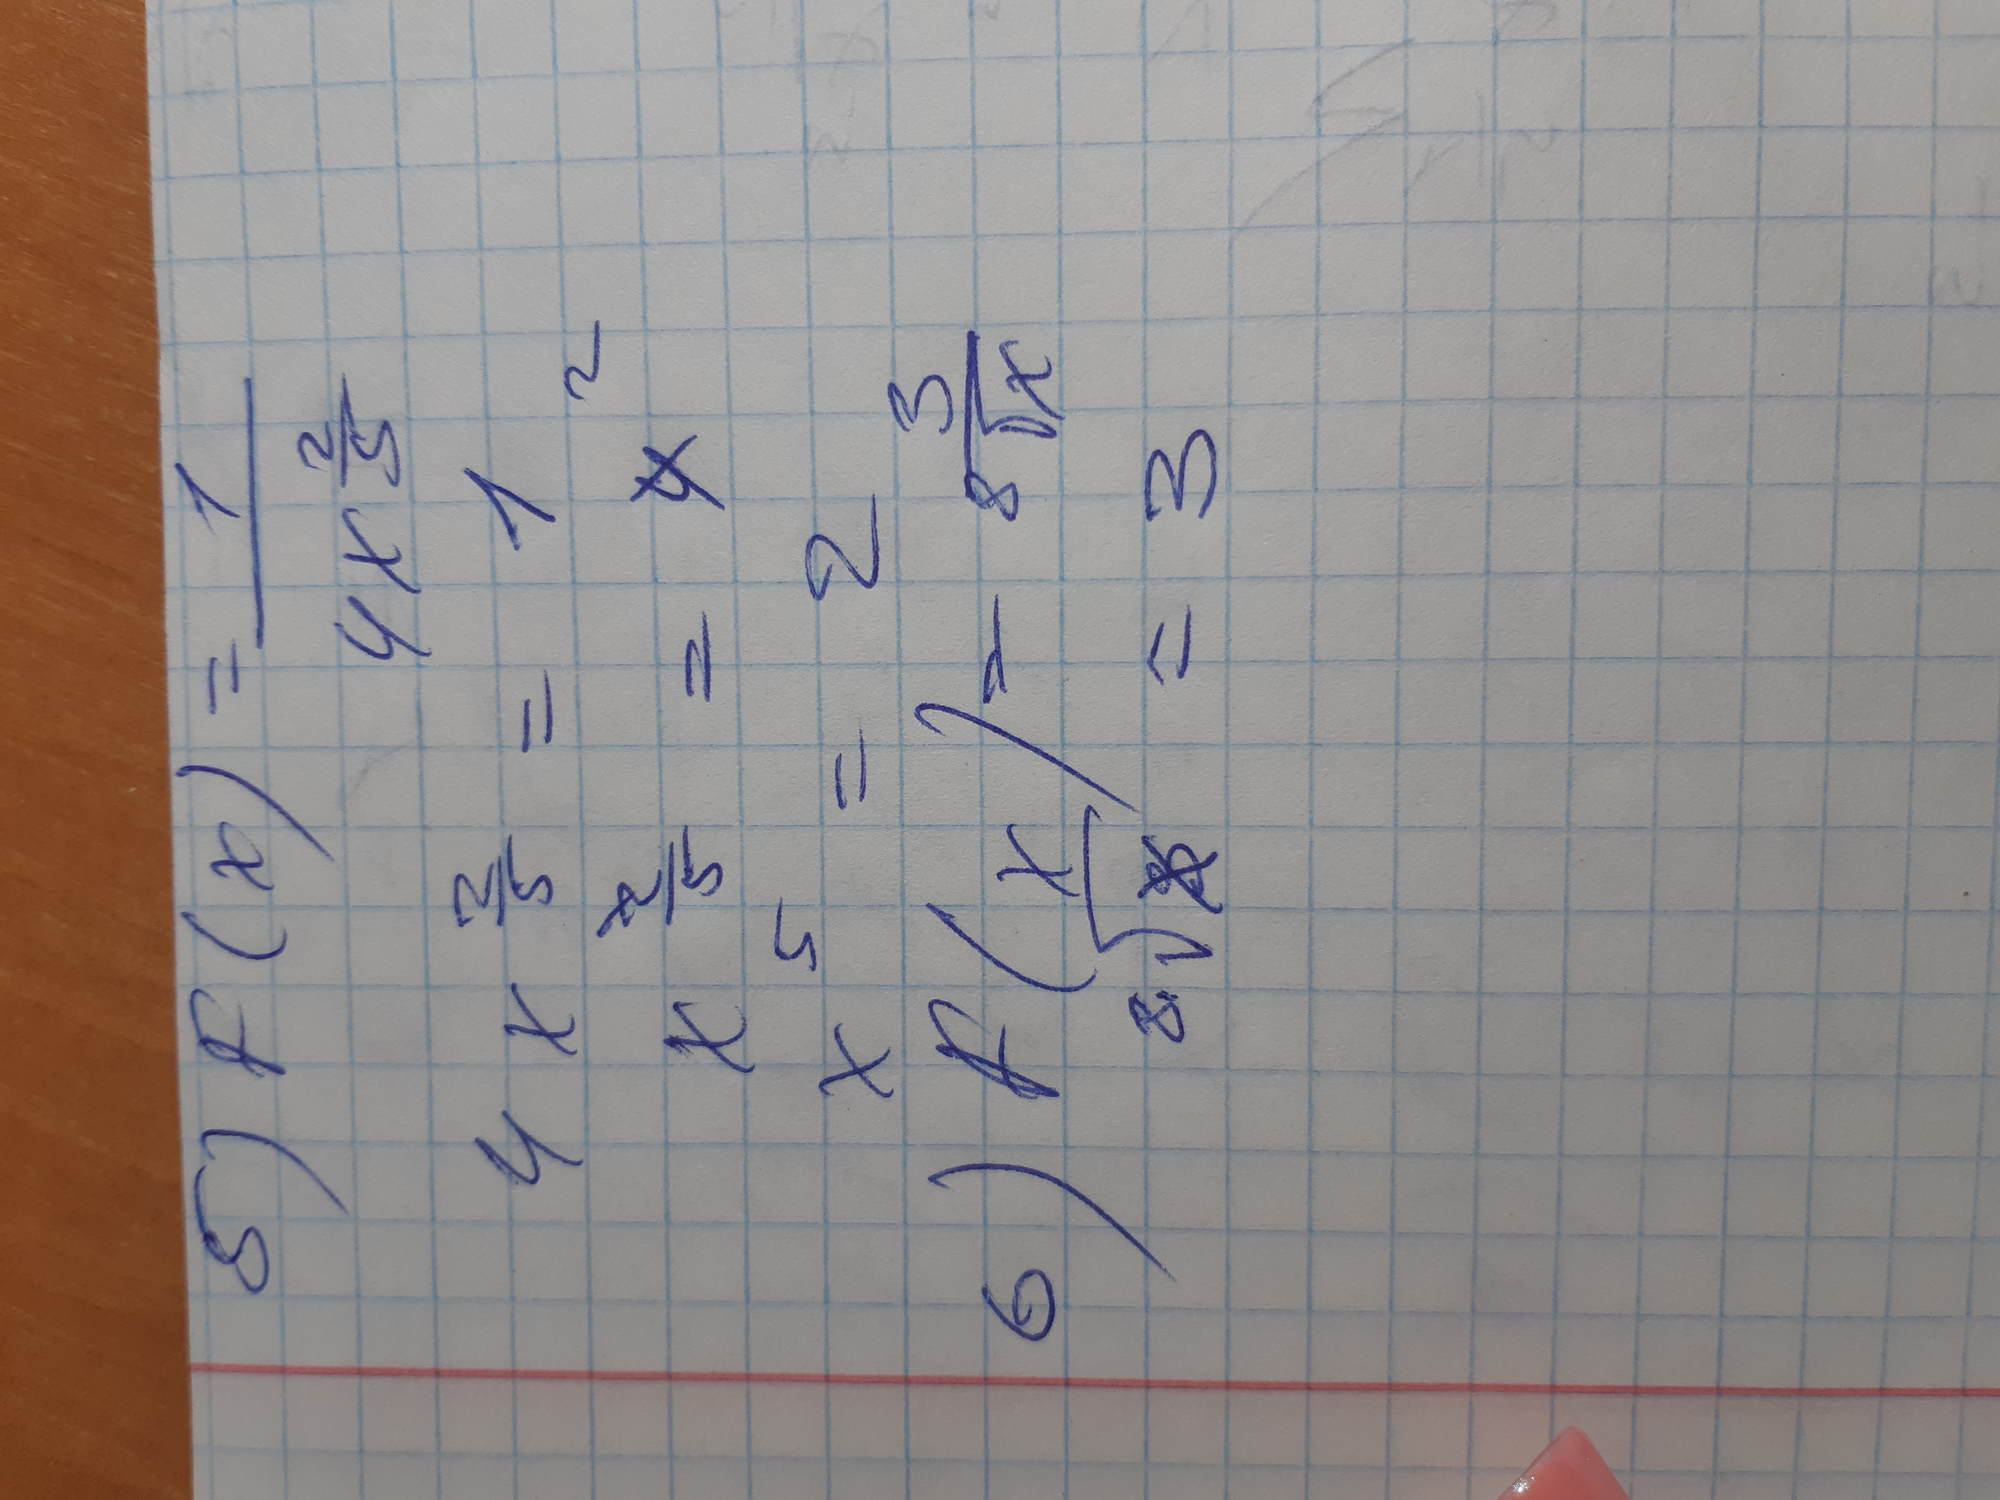 5) f(x) = 1/(4x^(2/5))
4x^(2/5) = 1
x^(2/5) = 4
x^5 = 2
6) f(x) = 3/(8√x)
8√x = 3